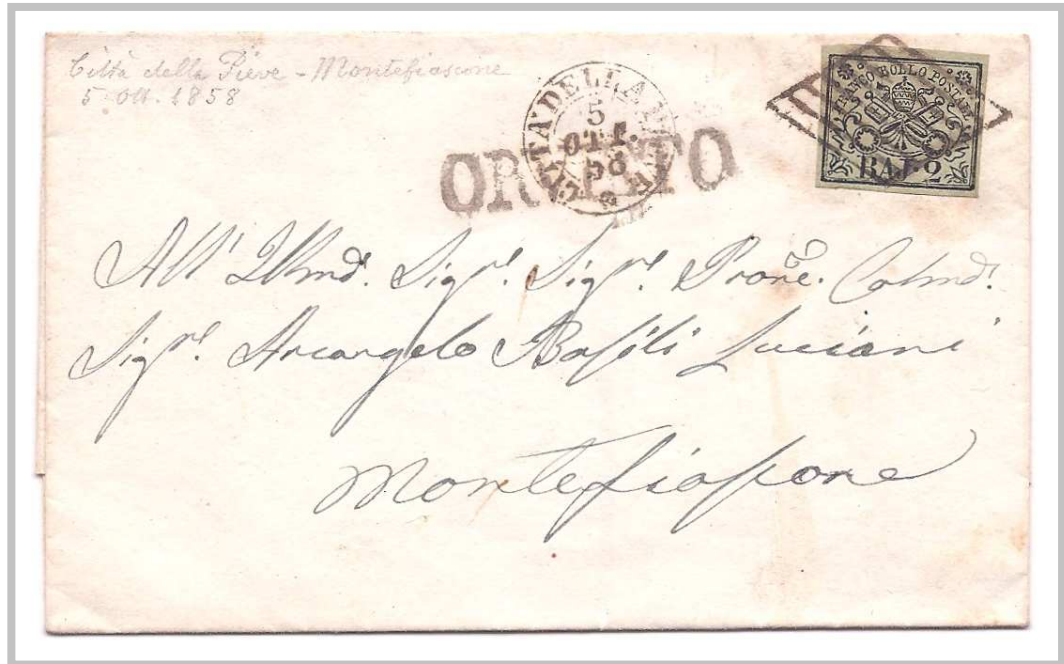 Città della Pieve - Montefiascone
5 Ott. 1858
CITTA' DELLA PIEVE
5
OTT.
58
ORVIETO
FRANCO BOLLO POSTALE
BAJ. 2
All' Illmo. Sigr. Sigr. Prone. Colmo.
Sigr. Arcangelo Basili Luciani
Montefiascone